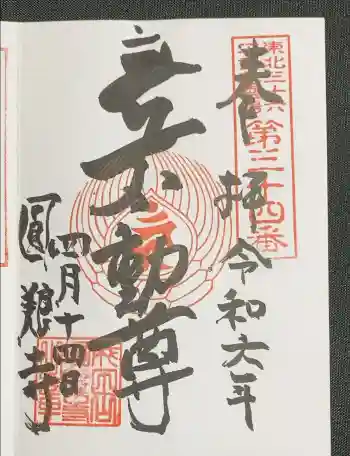 東北三十六
第三十四番
奉拝 令和六年
立不動尊
四月十四日
圓龍寺